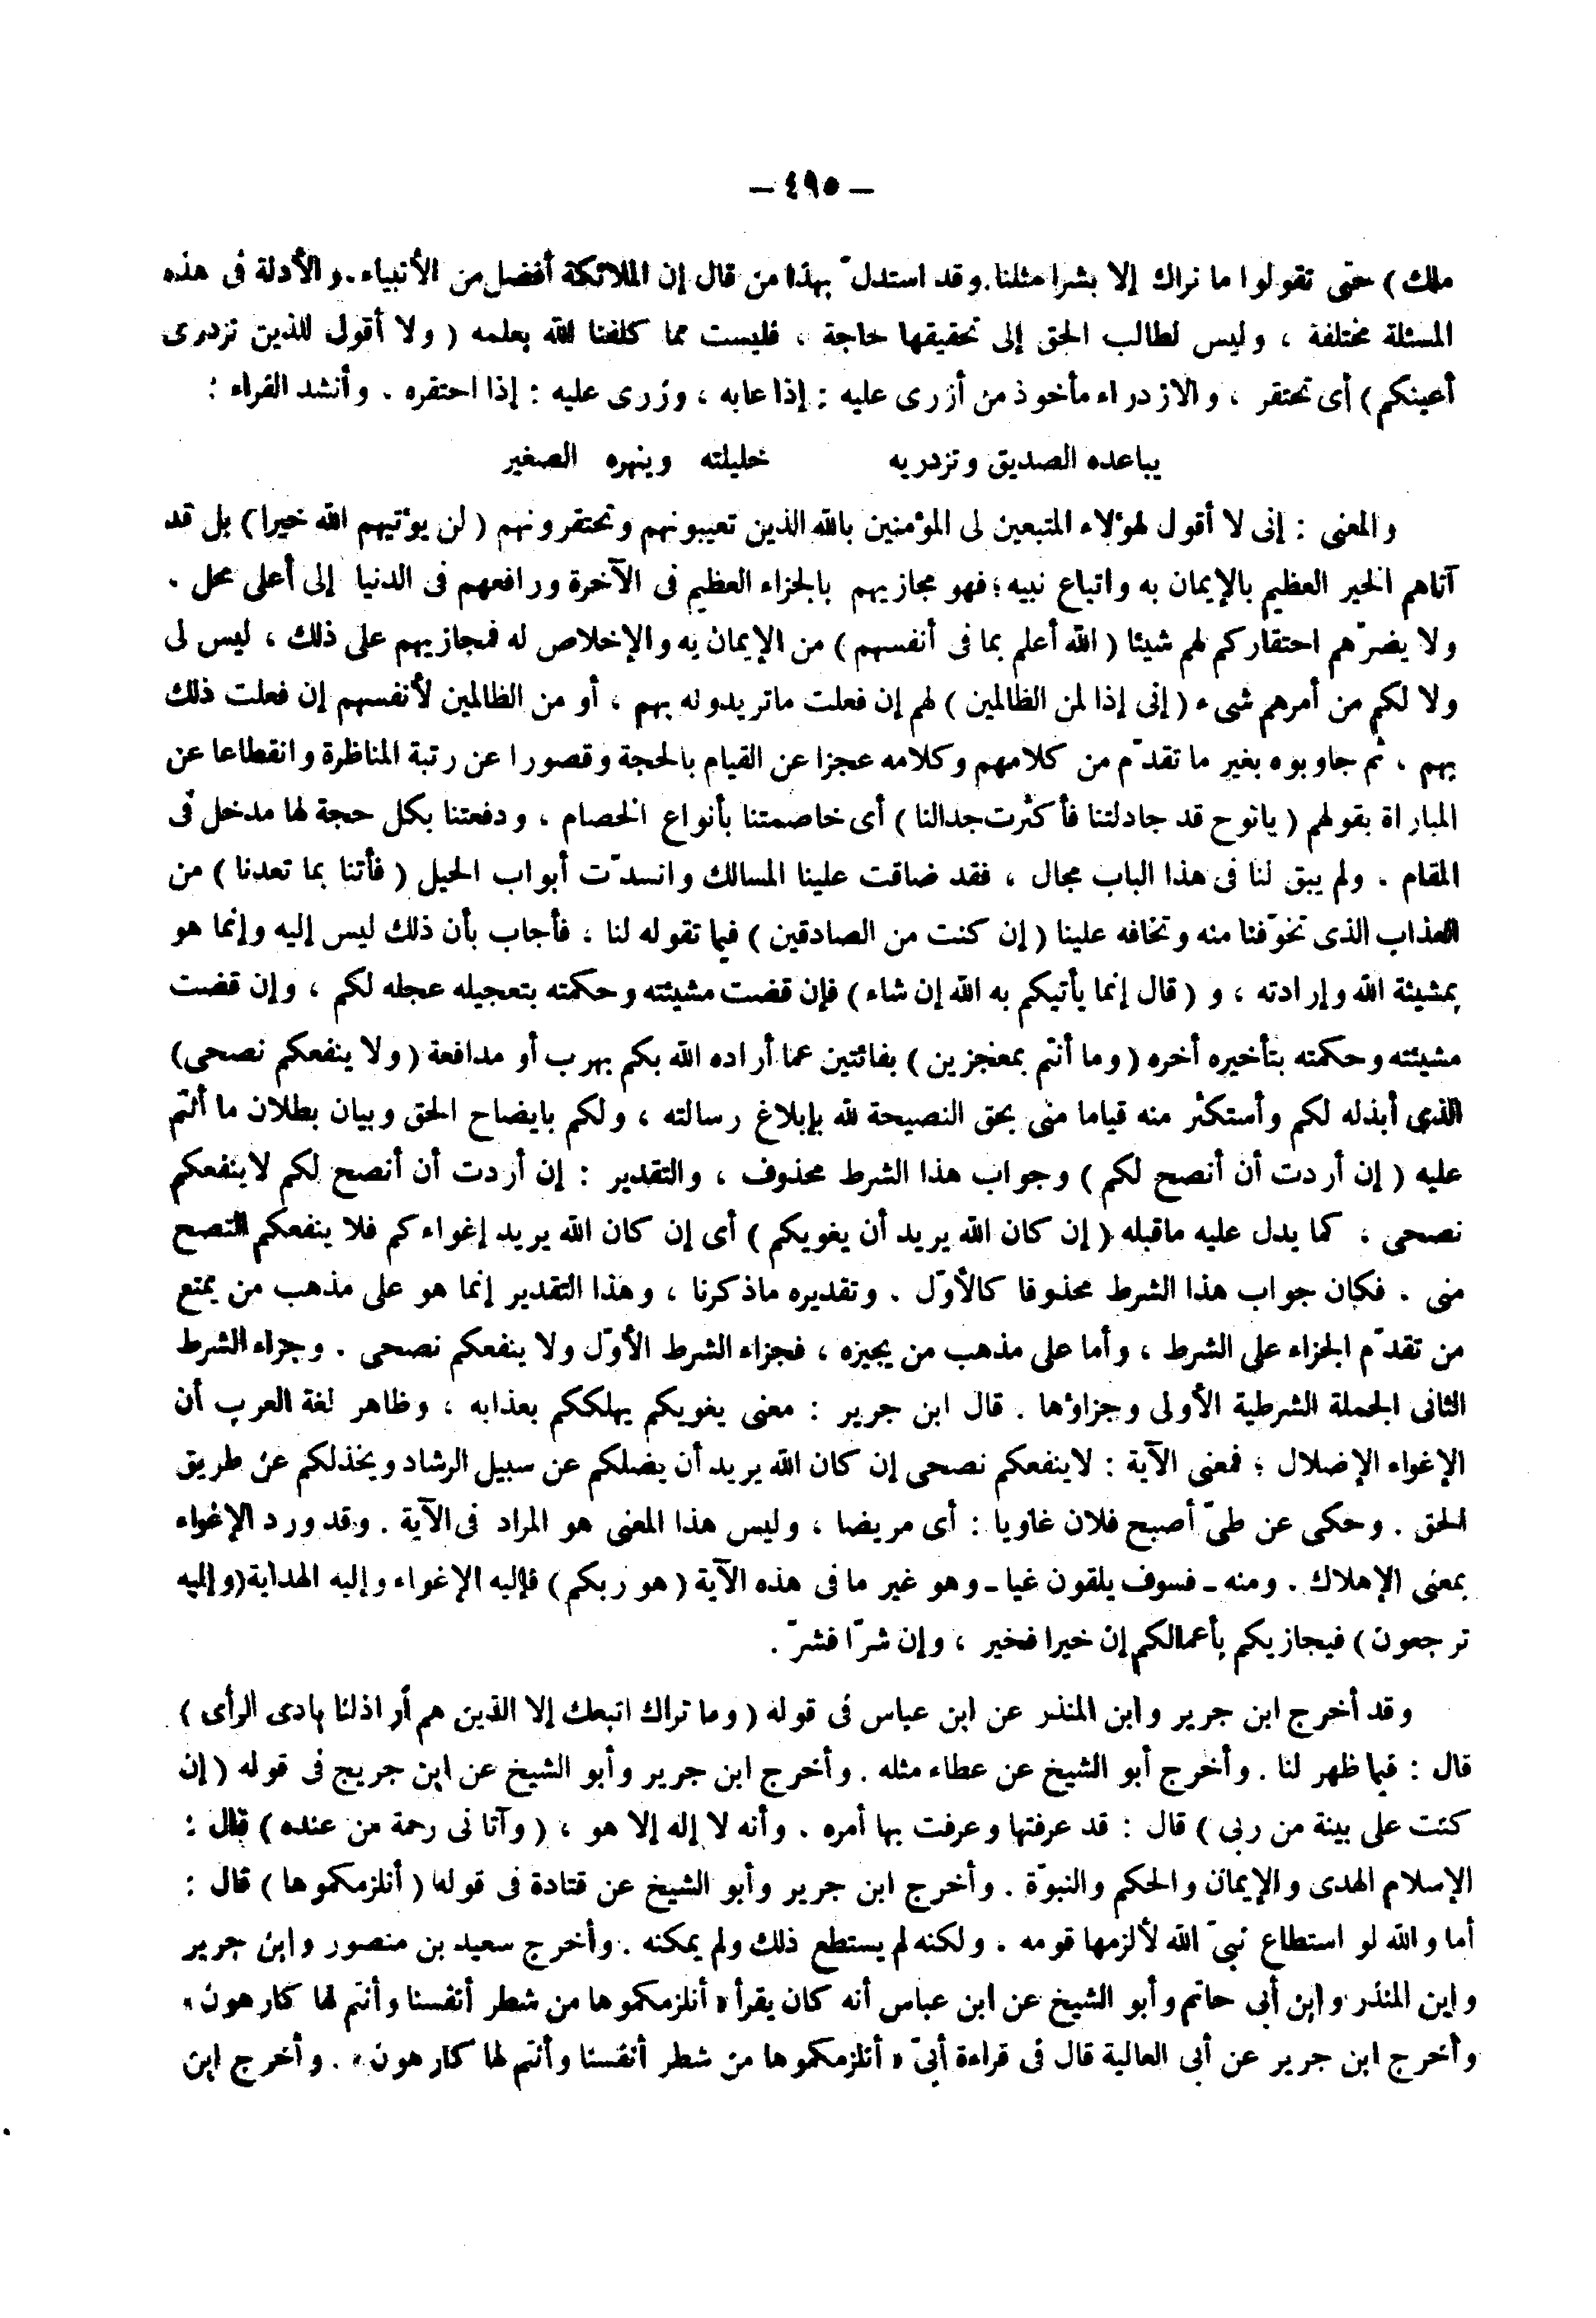 — ٤٩٥ —
ملك ) حتى تقولوا ما نراك إلا بشرا مثلنا . وقد استدلّ بهذا من قال إن الملائكة أفضل من الأنبياء . والأدلة فى هذه
المسئلة مختلفة ، وليس لطالب الحق إلى تحقيقها حاجة ، فليست مما كلفنا الله بعلمه ( ولا أقول للذين تزدرى
أعينكم ) أى تحتقر ، والازدراء مأخوذ من أزرى عليه : إذا عابه ، وزرى عليه : إذا احتقره . وأنشد الفراء :
يباعده الصديق وتزدريه خليلته وينهره الصغير
والمعنى : إنى لا أقول لهؤلاء المتبعين لى المؤمنين بالله الذين تعيبونهم وتحتقرونهم ( لن يؤتيهم الله خيرا ) بل قد
آتاهم الخير العظيم بالإيمان به واتباع نبيه ؛ فهو مجازيهم بالجزاء العظيم فى الآخرة ورافعهم فى الدنيا إلى أعلى محل .
ولا يضرّهم احتقاركم لهم شيئا ( الله أعلم بما فى أنفسهم ) من الإيمان به والإخلاص له فمجازيهم على ذلك ، ليس لى
ولا لكم من أمرهم شىء ( إنى إذا لمن الظالمين ) لهم إن فعلت ماتريدونه بهم ، أو من الظالمين لأنفسهم إن فعلت ذلك
بهم ، ثم جاوبوه بغير ما تقدّم من كلامهم وكلامه عجزا عن القيام بالحجة وقصورا عن رتبة المناظرة وانقطاعا عن
المباراة بقولهم ( يانوح قد جادلتنا فأكثرت جدالنا ) أى خاصمتنا بأنواع الخصام ، ودفعتنا بكل حجة لها مدخل فى
المقام . ولم يبق لنا فى هذا الباب مجال ، فقد ضاقت علينا المسالك وانسدّت أبواب الحيل ( فأتنا بما تعدنا ) من
العذاب الذى تخوّفنا منه وتخافه علينا ( إن كنت من الصادقين ) فيما تقوله لنا ، فأجاب بأن ذلك ليس إليه وإنما هو
بمشيئة الله وإرادته ، و ( قال إنما يأتيكم به الله إن شاء ) فإن قضت مشيئته وحكمته بتعجيله عجله لكم ، وإن قضت
مشيئته وحكمته بتأخيره أخره ( وما أنتم بمعجزين ) بفائتين عما أراده الله بكم بهرب أو مدافعة ( ولا ينفعكم نصحى )
الذى أبذله لكم وأستكثر منه قياما منى بحق النصيحة لله بإبلاغ رسالته ، ولكم بايضاح الحق وبيان بطلان ما أنتم
عليه ( إن أردت أن أنصح لكم ) وجواب هذا الشرط محذوف ، والتقدير : إن أردت أن أنصح لكم لاينفعكم
نصحى ، كما يدل عليه ماقبله ( إن كان الله يريد أن يغويكم ) أى إن كان الله يريد إغواءكم فلا ينفعكم النصح
منى . فكان جواب هذا الشرط محذوفا كالأوّل . وتقديره ماذكرنا ، وهذا التقدير إنما هو على مذهب من يمنع
من تقدّم الجزاء على الشرط ، وأما على مذهب من يجيزه ، فجزاء الشرط الأوّل ولا ينفعكم نصحى . وجزاء الشرط
الثانى الجملة الشرطية الأولى وجزاؤها . قال ابن جرير : معنى يغويكم يهلككم بعذابه ، وظاهر لغة العرب أن
الإغواء الإضلال ؛ فمعنى الآية : لاينفعكم نصحى إن كان الله يريد أن يضلكم عن سبيل الرشاد ويخذلكم عن طريق
الحق . وحكى عن طىّ أصبح فلان غاويا : أى مريضا ، وليس هذا المعنى هو المراد فى الآية . وقد ورد الإغواء
بمعنى الإهلاك . ومنه ـ فسوف يلقون غيا ـ وهو غير ما فى هذه الآية ( هو ربكم ) فإليه الإغواء وإليه الهداية ( وإليه
ترجعون ) فيجازيكم بأعمالكم إن خيرا فخير ، وإن شرّا فشرّ .
وقد أخرج ابن جرير وابن المنذر عن ابن عباس فى قوله ( وما نراك اتبعك إلا الذين هم أراذلنا بادى الرأى )
قال : فيما ظهر لنا . وأخرج أبو الشيخ عن عطاء مثله . وأخرج ابن جرير وأبو الشيخ عن ابن جريج فى قوله ( إن
كنت على بينة من ربى ) قال : قد عرفتها وعرفت بها أمره . وأنه لا إله إلا هو ، ( وآتا نى رحمة من عنده ) قال :
الإسلام الهدى والإيمان والحكم والنبوّة . وأخرج ابن جرير وأبو الشيخ عن قتادة فى قوله ( أنلزمكموها ) قال :
أما والله لو استطاع نبىّ الله لألزمها قومه . ولكنه لم يستطع ذلك ولم يمكنه . وأخرج سعيد بن منصور وابن جرير
وابن المنذر وابن أبى حاتم وأبو الشيخ عن ابن عباس أنه كان يقرأ « أنلزمكموها من شطر أنفسنا وأنتم لها كارهون »
وأخرج ابن جرير عن أبى العالية قال فى قراءة أبىّ « أنلزمكموها من شطر أنفسنا وأنتم لها كارهون » . وأخرج ابن